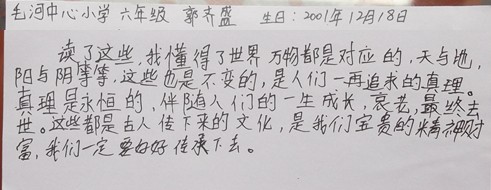 毛河中心小学 六年级 郭齐盛 生日：2001年12月18日
读了这些，我懂得了世界万物都是对应的，天与地，
阳与阴等等，这些也是不变的，是人们一再追求的真理。
真理是永恒的，伴随人们的一生成长，衰老，最终去
世。这些都是古人传下来的文化，是我们宝贵的精神财
富，我们一定要好好传承下去。